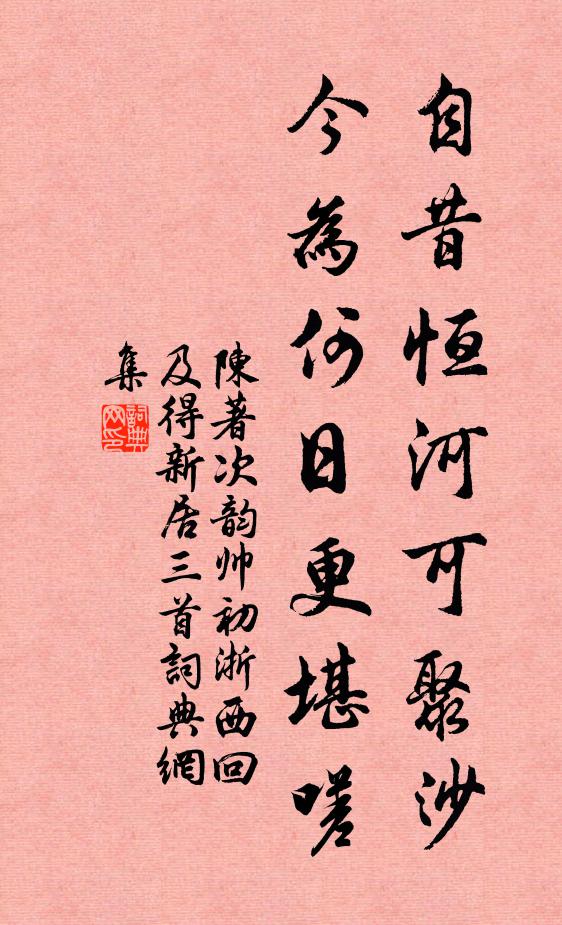 自昔恒河可聚沙
今為何日更堪嗟
陳著次韵帅初浙西回
及得新居三首詞典網
集
詞典网印